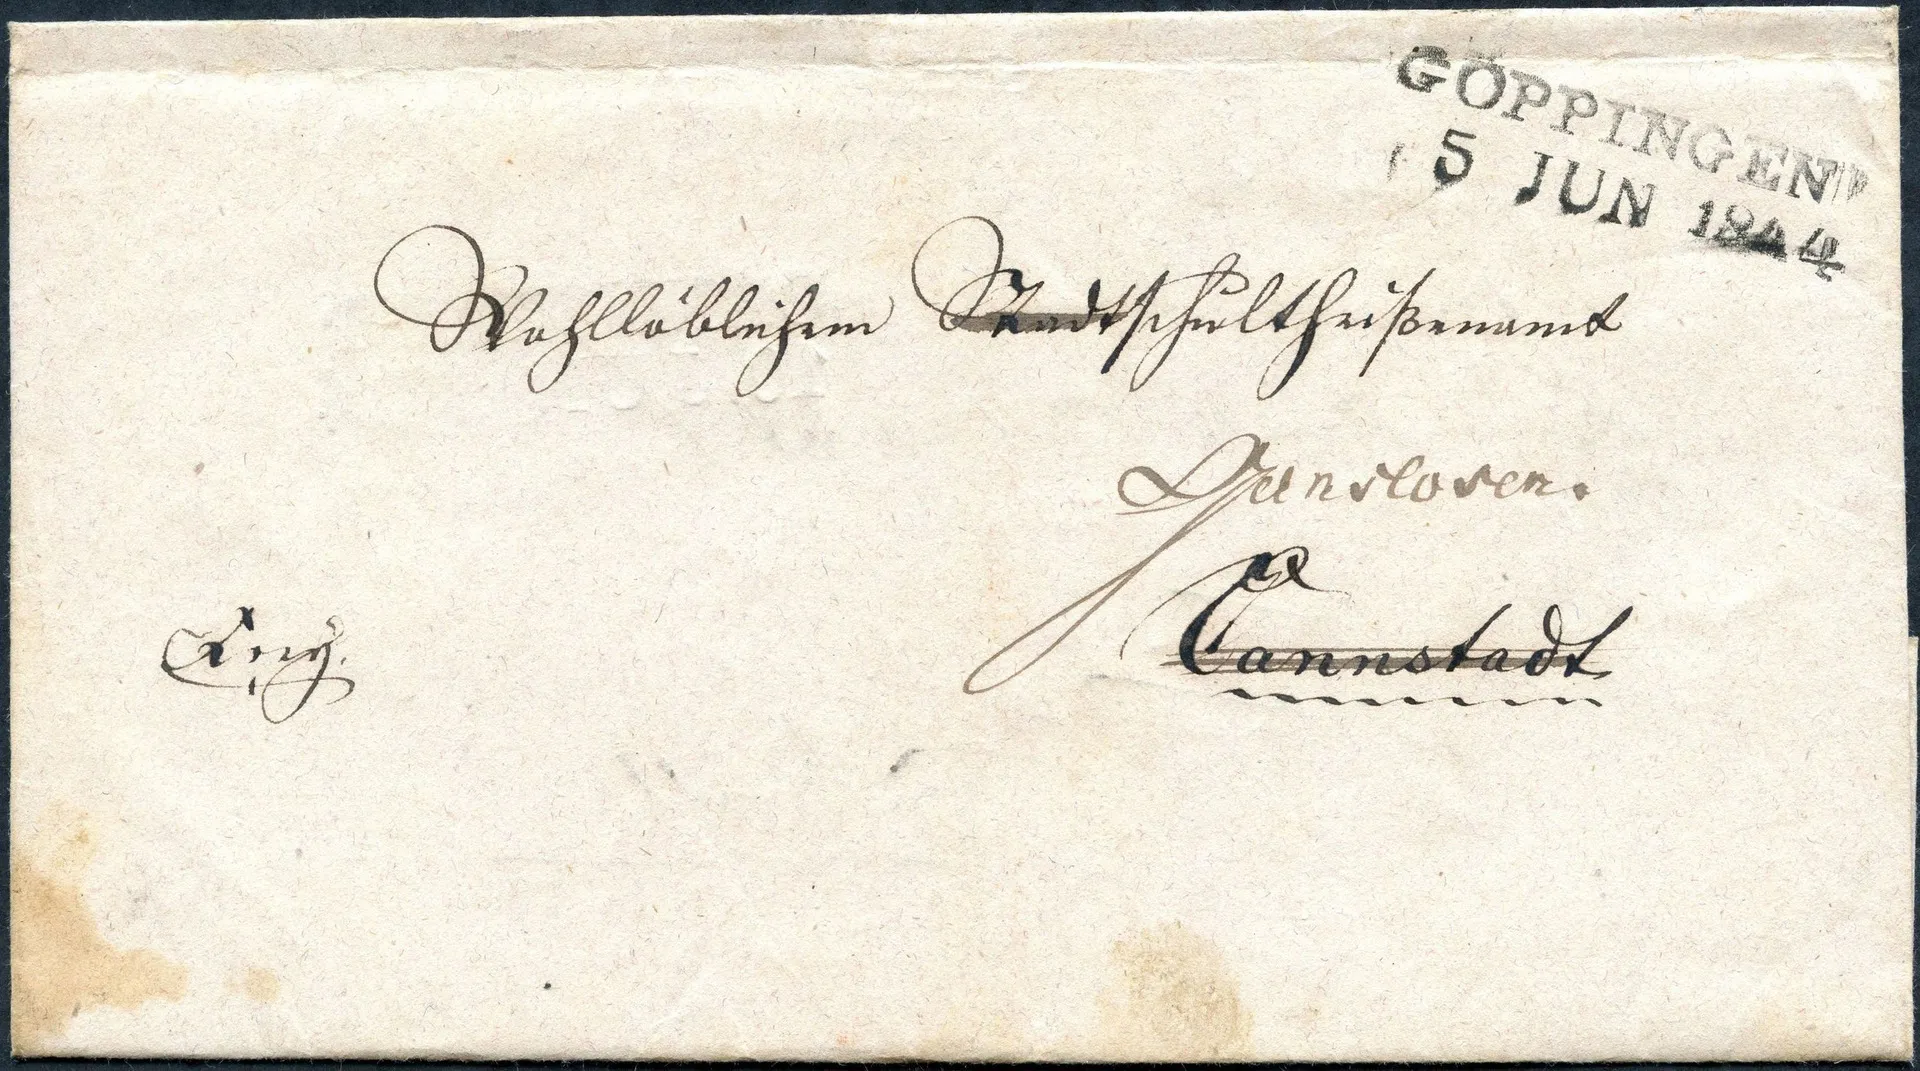 GÖPPINGEN
5 JUN 1844
Wohllöblichem Stadtschultheißenamt
Ganslosen.
Cannstadt
Frey.